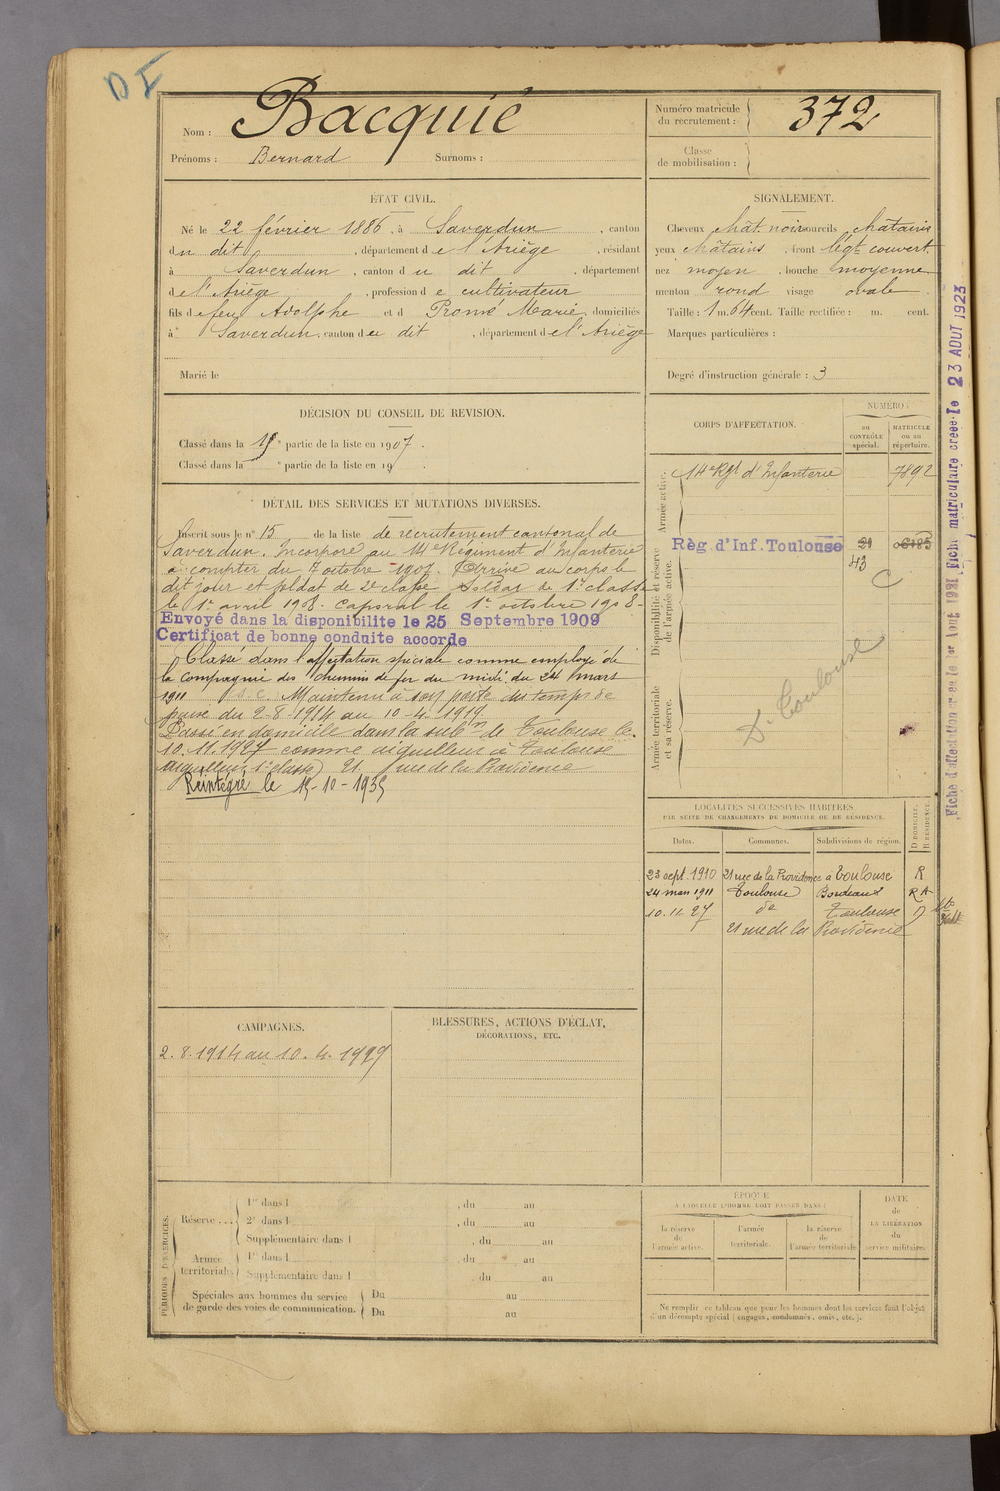 DI
Nom : Bacquié
Prénoms : Bernard Surnoms :
Numéro matricule du recrutement : 372
Classe de mobilisation :
ÉTAT CIVIL.
Né le 22 février 1886, à Saverdun, canton
du dit, département de l'Ariège, résidant
à Saverdun, canton du dit, département
de l'Ariège, profession de cultivateur
fils de feu Adolphe et d Promé Marie, domiciliés
à Saverdun, canton du dit, département de l'Ariège
Marié le
SIGNALEMENT.
Cheveux chât. noir sourcils châtains
yeux châtains, front légt couvert
nez moyen, bouche moyenne
menton rond visage ovale
Taille : 1 m. 64 cent. Taille rectifiée : m. cent.
Marques particulières :
Degré d'instruction générale : 3
DÉCISION DU CONSEIL DE REVISION.
Classé dans la 1re partie de la liste en 1907.
Classé dans la e partie de la liste en 19 .
DÉTAIL DES SERVICES ET MUTATIONS DIVERSES.
Inscrit sous le n° 15 de la liste de recrutement cantonal de
Saverdun. Incorporé au 14e Régiment d'Infanterie
à compter du 7 octobre 1907. Arrivé au corps le
dit jour et soldat de 2e classe. Soldat de 1re classe
le 1er avril 1908. Caporal le 1er octobre 1908.
Envoyé dans la disponibilite le 25 Septembre 1909
Certificat de bonne conduite accorde
Classé dans l'affectation spéciale comme employé de
la compagnie des chemins de fer du midi du 24 mars
1911 S.C. Maintenu à son poste du temps de
paix du 2-8-1914 au 10-4-1919
Passé en domicile dans la subon de Toulouse le
10.11.1927 comme aiguilleur à Toulouse
(aiguilleur 1e classe) 21, rue de la Providence
Réintégré le 15-10-1935
CORPS D'AFFECTATION.
NUMÉRO :
au CONTRÔLE spécial.
MATRICULE ou au répertoire.
Armée active.
14e Rgt d'Infanterie 7892
Disponibilité et réserve de l'armée active.
Règ d'Inf. Toulouse 21 06185
43
C
Armée territoriale et sa réserve.
Dt Toulouse
LOCALITÉS SUCCESSIVES HABITÉES
PAR SUITE DE CHANGEMENTS DE DOMICILE OU DE RÉSIDENCE.
Dates. Communes. Subdivisions de région. D. DOMICILE. R. RÉSIDENCE.
23 sept. 1910 21 rue de la Providence à Toulouse R
24 mars 1911 Toulouse Bordeaux R
10.11.27 do Toulouse D
21 rue de la Providence
CAMPAGNES.
2.8.1914 au 10.4.1919
BLESSURES, ACTIONS D'ÉCLAT,
DÉCORATIONS, ETC.
PÉRIODES D'EXERCICES.
Réserve . . . 1re dans l , du au
2e dans l , du au
Supplémentaire dans l , du au
Armée territoriale 1re dans l , du au
Supplémentaire dans l , du au
Spéciales aux hommes du service de garde des voies de communication. Du au
Du au
ÉPOQUE
À LAQUELLE L'HOMME DOIT PASSER DANS :
la réserve de l'armée active.
l'armée territoriale.
la réserve de l'armée territoriale.
DATE de LA LIBÉRATION du service militaire.
Ne remplir ce tableau que pour les hommes dont les services font l'objet
d'un décompte spécial (engagés, condamnés, omis, etc.).
Fiche d'affectation créée le 1er Août 1921 Fiche matriculaire creee le 23 AOUT 1923